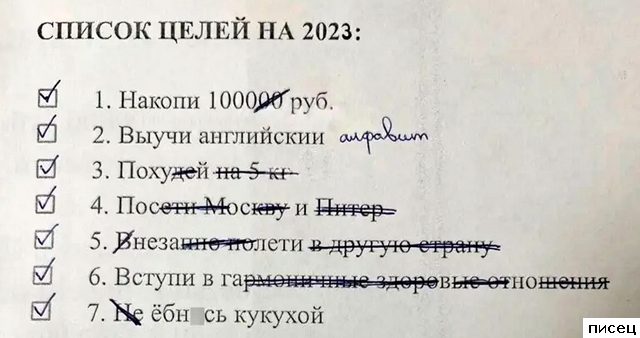 СПИСОК ЦЕЛЕЙ НА 2023:
1. Накопи 100000 руб.
2. Выучи английскии алфавит
3. Похудей на 5 кг
4. Посети Москву и Питер
5. Внезапно полети в другую страну
6. Вступи в гармоничные здоровые отношения
7. Не ёбн сь кукухой
писец